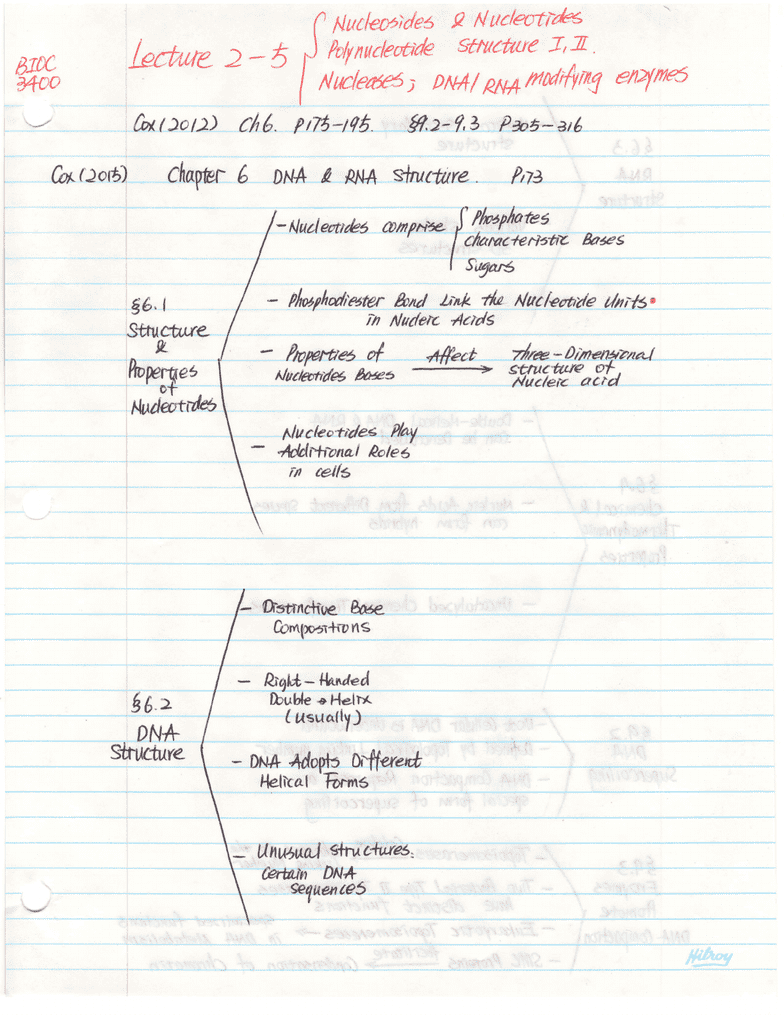 BIOC
3400
Lecture 2-5
Nucleosides & Nucleotides
Polynucleotide structure I, II.
Nucleases; DNA/RNA modifying enzymes
Cox (2012) Ch6. P175-195. §9.2-9.3 P305-316
Cox (2015) Chapter 6 DNA & RNA Structure. P173
§6.1
Structure
&
Properties
of
Nucleotides
- Nucleotides comprise
Phosphates
Characteristic Bases
Sugars
- Phosphodiester Bond Link the Nucleotide Units
in Nucleic Acids
- Properties of
Nucleotides Bases
Affect
Three-Dimensional
structure of
Nucleic acid
- Nucleotides Play
Additional Roles
in cells
§6.2
DNA
Structure
- Distinctive Base
Compositions
- Right-Handed
Double Helix
(usually)
- DNA Adopts Different
Helical Forms
- Unusual structures:
certain DNA
sequences
Hilroy